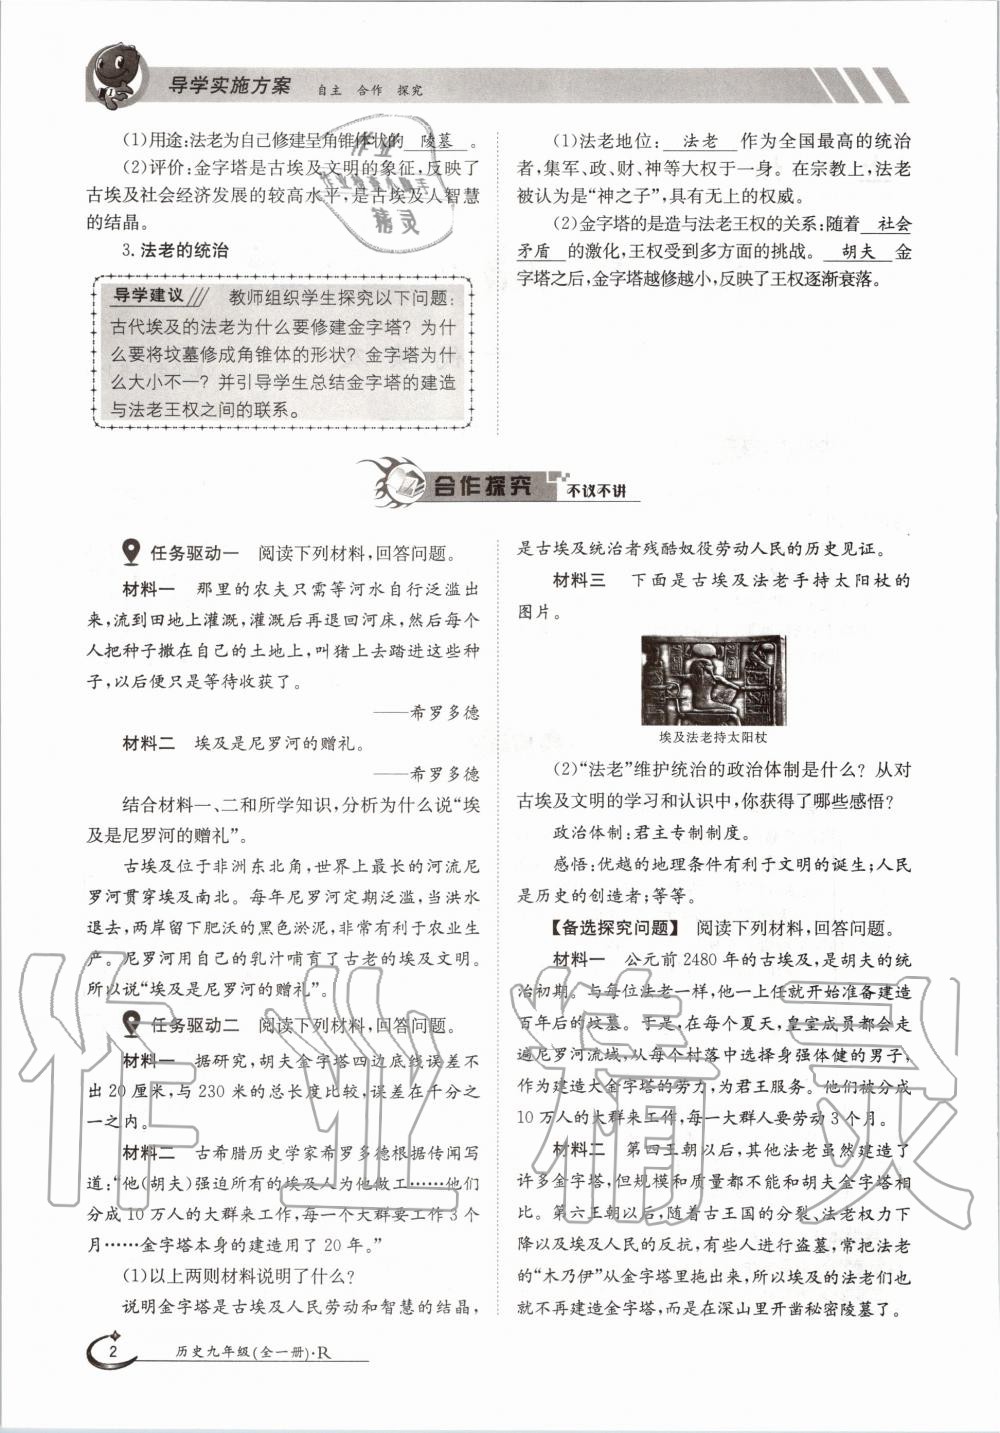 导学实施方案 自主 合作 探究
(1)用途:法老为自己修建呈角锥体状的 陵墓 。
(2)评价:金字塔是古埃及文明的象征,反映了
古埃及社会经济发展的较高水平,是古埃及人智慧
的结晶。
3. 法老的统治
导学建议 教师组织学生探究以下问题:
古代埃及的法老为什么要修建金字塔?为什
么要将坟墓修成角锥体的形状?金字塔为什
么大小不一?并引导学生总结金字塔的建造
与法老王权之间的联系。
(1)法老地位: 法老 作为全国最高的统治
者,集军、政、财、神等大权于一身。在宗教上,法老
被认为是“神之子”,具有无上的权威。
(2)金字塔的是造与法老王权的关系:随着 社会
矛盾 的激化,王权受到多方面的挑战。 胡夫 金
字塔之后,金字塔越修越小,反映了王权逐渐衰落。
合作探究 不议不讲
任务驱动一 阅读下列材料,回答问题。
材料一 那里的农夫只需等河水自行泛滥出
来,流到田地上灌溉,灌溉后再退回河床,然后每个
人把种子撒在自己的土地上,叫猪上去踏进这些种
子,以后便只是等待收获了。
——希罗多德
材料二 埃及是尼罗河的赠礼。
——希罗多德
结合材料一、二和所学知识,分析为什么说“埃
及是尼罗河的赠礼”。
古埃及位于非洲东北角,世界上最长的河流尼
罗河贯穿埃及南北。每年尼罗河定期泛滥,当洪水
退去,两岸留下肥沃的黑色淤泥,非常有利于农业生
产。尼罗河用自己的乳汁哺育了古老的埃及文明。
所以说“埃及是尼罗河的赠礼”。
任务驱动二 阅读下列材料,回答问题。
材料一 据研究,胡夫金字塔四边底线误差不
出 20 厘米,与 230 米的总长度比较,误差在千分之
一之内。
材料二 古希腊历史学家希罗多德根据传闻写
道:“他(胡夫)强迫所有的埃及人为他做工……他们
分成 10 万人的大群来工作,每一个大群要工作 3 个
月……金字塔本身的建造用了 20 年。”
(1)以上两则材料说明了什么?
说明金字塔是古埃及人民劳动和智慧的结晶,
是古埃及统治者残酷奴役劳动人民的历史见证。
材料三 下面是古埃及法老手持太阳杖的
图片。
埃及法老持太阳杖
(2)“法老”维护统治的政治体制是什么?从对
古埃及文明的学习和认识中,你获得了哪些感悟?
政治体制:君主专制制度。
感悟:优越的地理条件有利于文明的诞生;人民
是历史的创造者;等等。
【备选探究问题】 阅读下列材料,回答问题。
材料一 公元前 2480 年的古埃及,是胡夫的统
治初期。与每位法老一样,他一上任就开始准备建造
百年后的坟墓。于是,在每个夏天,皇室成员都会走
遍尼罗河流域,从每个村落中选择身强体健的男子,
作为建造大金字塔的劳力,为君王服务。他们被分成
10 万人的大群来工作,每一大群人要劳动 3 个月。
材料二 第四王朝以后,其他法老虽然建造了
许多金字塔,但规模和质量都不能和胡夫金字塔相
比。第六王朝以后,随着古王国的分裂、法老权力下
降以及埃及人民的反抗,有些人进行盗墓,常把法老
的“木乃伊”从金字塔里拖出来,所以埃及的法老们也
就不再建造金字塔,而是在深山里开凿秘密陵墓了。
2 历史九年级(全一册)·R
作业精灵